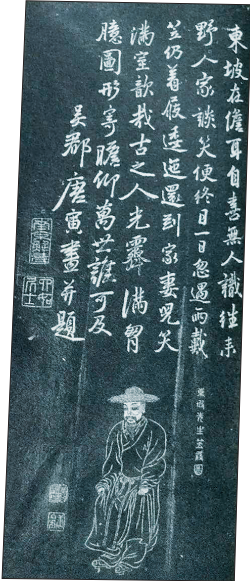 東坡在儋耳自喜無人識往來
野人家談笑便終日一日忽遇雨戴
笠仍着屐逶迤還到家妻児笑
滿室歆哉古之人光霽滿胸
臆圖形寄瞻仰萬世誰可及
吳郡唐寅畫并題
東坡先生笠屐圖